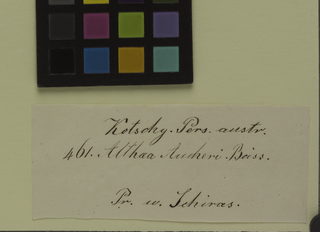 Kotschy. Pers. austr.
461. Althaea Aucheri Boiss.
Pr. u. Schiras.